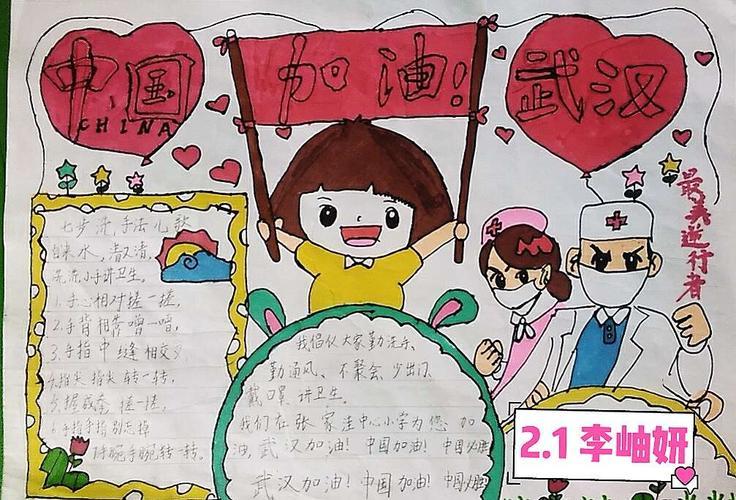 中国
CHINA
加油!
武汉
最美逆行者
七步洗手法儿歌
自来水,清又清,
洗洗小手讲卫生。
1.手心相对搓一搓,
2.手背相靠噌一噌,
3.手指中缝相交叉
4.指尖指尖转一转,
5.握成拳 搓一搓,
6.手指手指别忘掉
7.手腕手腕转一转。
我倡仪大家勤洗手、
勤通风、不聚会、少出门、
戴口罩、讲卫生。
我们在张家洼中心小学为您加
油,武汉加油!中国加油!中国必胜
武汉加油!中国加油!中国必胜
2.1 李岫妍